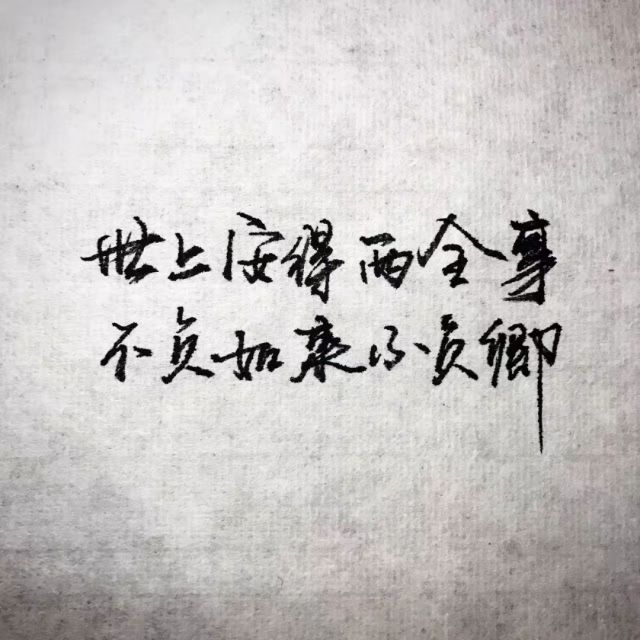 世上安得两全事
不负如来不负卿